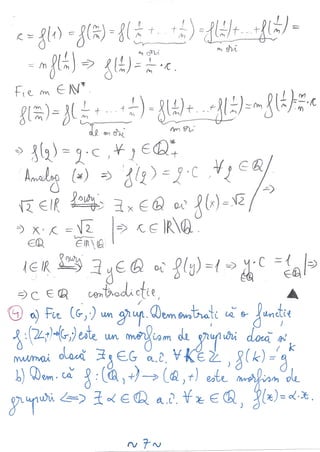 c = f(1) = f(n/n) = f(1/n + ... + 1/n) = f(1/n) + ... + f(1/n) =
n ori
n ori
= n f(1/n) ⇒ f(1/n) = 1/n · c.
Fie m ∈ ℕ*.
f(m/n) = f(1/n + ... + 1/n) = f(1/n) + ... + f(1/n) = m f(1/n) = m/n · c
de m ori
m ori
⇒ f(q) = q · c, ∀ q ∈ ℚ*₊
Analog (*) ⇒ f(q) = q · c, ∀ q ∈ ℚ
√2 ∈ ℝ ⇒ f surj ∃ x ∈ ℚ aî f(x) = √2 ⇒
⇒ x · c = √2 | ⇒ c ∈ ℝ\ℚ.
∈ℚ ∈ℝ\ℚ
1 ∈ ℝ ⇒ f surj ∃ y ∈ ℚ aî f(y) = 1 ⇒ y · c = 1 | ⇒
∈ℚ ∈ℚ
⇒ c ∈ ℚ contradicție, ▲
④ a) Fie (G, ·) un grup. Demonstrați că o funcție
f : (ℤ, +) → (G, ·) este un morfism de grupuri dacă și
numai dacă ∃ g ∈ G a.î. ∀ k ∈ ℤ, f(k) = g^k
b) Dem. că f : (ℚ, +) → (ℚ, +) este morfism de
grupuri ⇔ ∃ α ∈ ℚ a.î. ∀ x ∈ ℚ, f(x) = α · x.
~ 7 ~